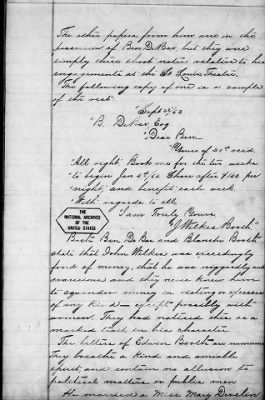 The other papers from him are in the
possession of Ben DeBar, but they were
simply three short notes relative to his
engagements at the St Louis Theatre.
The following copy of one is a sample
of the rest:
"Sept 22/63
"B. DeBar, Esq
"Dear Ben
"Yours of 20th recd
"All right. Book me for the two weeks
"to begin Jan 4th/64 Share after $140 per
"night, and benefit each week.
"With regards to all,
"I am Truly Yours
"J. Wilkes Booth."
THE NATIONAL ARCHIVES OF THE UNITED STATES
Both Ben De Bar and Blanche Booth
state that John Wilkes was exceedingly
fond of money, that he was niggardly and
and they never knew him
to squander money in victory or excesses
of any kind - except possibly with
women. They had noticed this as a
marked trait in his character.
The letters of Edwin Booth are numerous
They breathe a kind and amiable
spirit, and contain no allusion to
political matters or public men
He married a Miss Mary Devlin